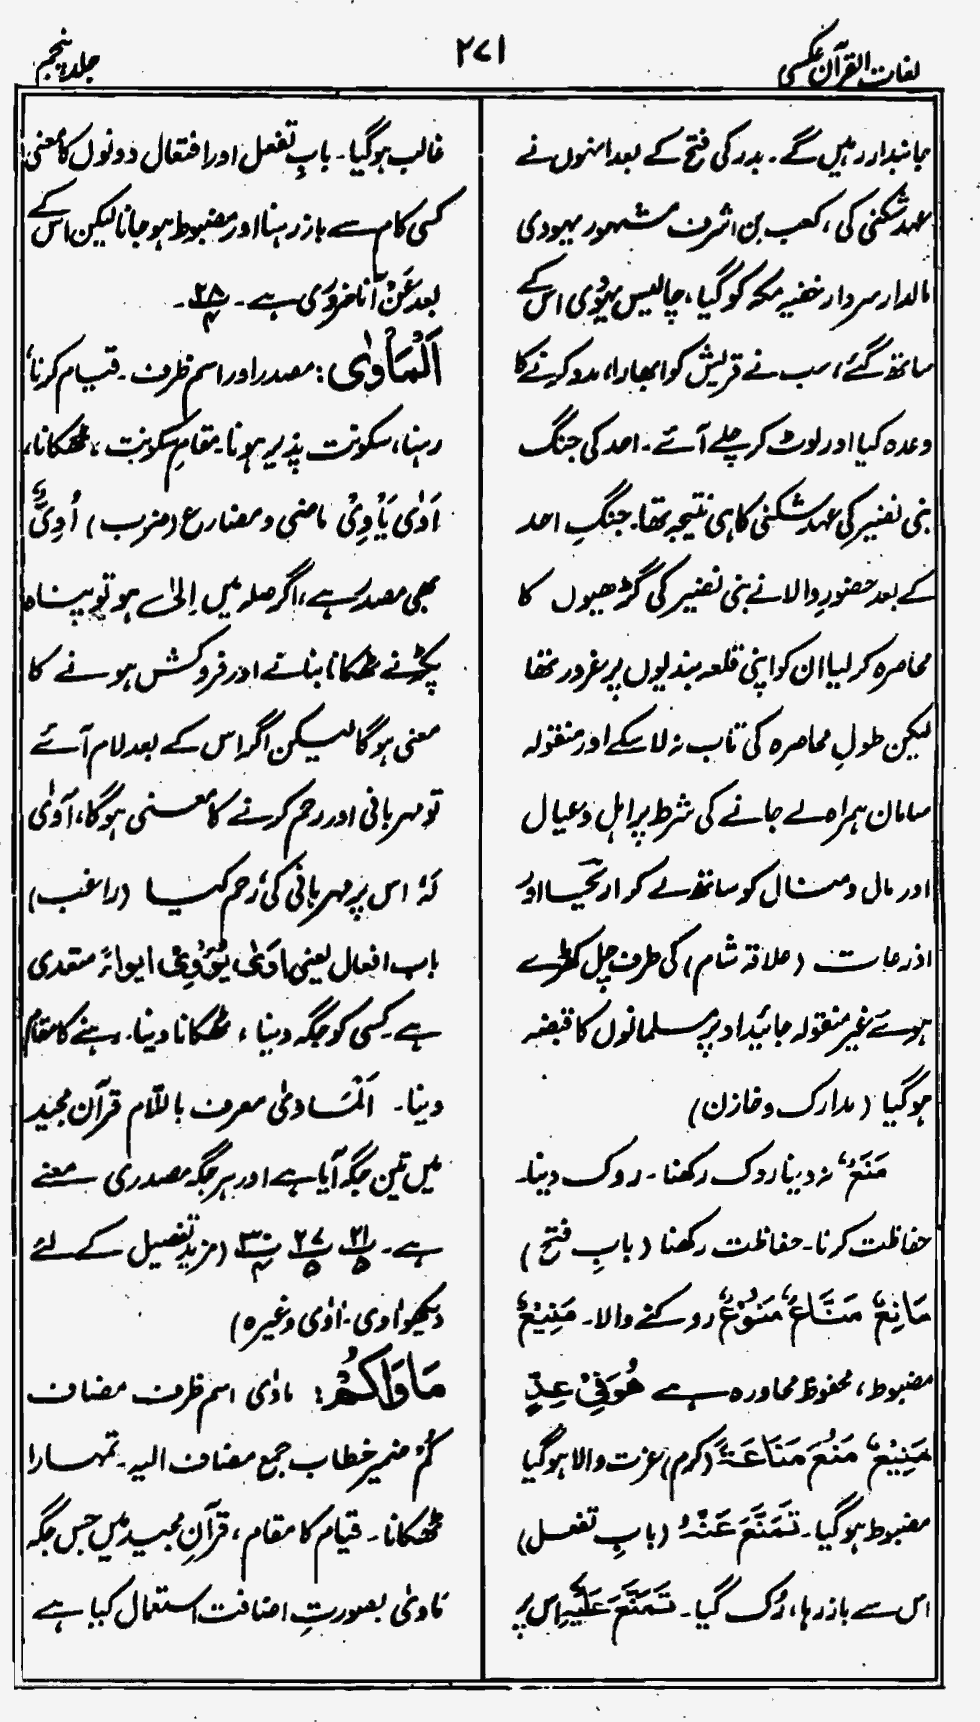 لغات القرآن عکسی
۲۷۱
جلد پنجم
جانبدار رہیں گے۔ بدر کی فتح کے بعد انہوں نے
عہد شکنی کی، کعب بن اشرف مشہور یہودی
مالدار سردار خفیہ مکہ کو گیا، چالیس یہودی اس کے
ساتھ گئے، سب نے قریش کو ابھارا، مدد کرنے کا
وعدہ کیا اور لوٹ کر چلے آئے۔ احد کی جنگ
بنی نضیر کی عہد شکنی کا ہی نتیجہ تھا۔ جنگِ احد
کے بعد حضورِ والا نے بنی نضیر کی گڑھیوں کا
محاصرہ کر لیا ان کو اپنی قلعہ بندیوں پر غرور تھا
لیکن طولِ محاصرہ کی تاب نہ لا سکے اور منقولہ
سامان ہمراہ لے جانے کی شرط پر اہل و عیال
اور مال و منال کو ساتھ لے کر اریحیا اور
اذرعات (علاقہ شام) کی طرف چل کھڑے
ہوئے غیر منقولہ جائیداد پر مسلمانوں کا قبضہ
ہو گیا (مدارک و خازن)
مَنَعَ نہ دینا روک رکھنا۔ روک دینا۔
حفاظت کرنا۔ حفاظت رکھنا (بابِ فتح)
مَانِعٌ مَنَّاعٌ مَنُوْعٌ روکنے والا۔ مَنِیْعٌ
مضبوط، محفوظ محاورہ ہے ھُوَ فِیْ عِزٍّ
مَنِیْعٍ مَنُعَ مَنَاعَۃً (کرم) عزت والا ہو گیا
مضبوط ہو گیا۔ تَمَنَّعَ عَنْہُ (بابِ تفعل)
اس سے باز رہا، رُک گیا۔ تَمَنَّعَ عَلَیْہِ اس پر
غالب ہو گیا۔ بابِ تفعل اور افتعال دونوں کا معنی
کسی کام سے باز رہنا اور مضبوط ہو جانا لیکن اس کے
بعد عَنْ آنا ضروری ہے۔ ۲۸/۴۔
اَلْمَأْوٰی: مصدر اور اسم ظرف۔ قیام کرنا
رہنا، سکونت پذیر ہونا۔ مقامِ سکونت، ٹھکانا،
اَوٰی یَأْوِیْ ماضی و مضارع (ضرب) اُوِیٌّ
بھی مصدر ہے، اگر صلہ میں اِلیٰ ہے ہو تو پناہ
پکڑنے ٹھکانا بنانے اور فروکش ہونے کا
معنی ہوگا لیکن اگر اس کے بعد لام آئے
تو مہربانی اور رحم کرنے کا معنی ہوگا، اَوٰی
لَہٗ اس پر مہربانی کی، رحم کیا (راغب)
باب افعال یعنی اٰوٰی یُؤْوِیْ ایواءً متعدی
ہے۔ کسی کو جگہ دینا، ٹھکانا دینا۔ رہنے کا مقام
دینا۔ اَلْمَاْویٰ معرف باللام قرآن مجید
میں تین جگہ آیا ہے اور ہر جگہ مصدری معنے
ہے۔ ۲۱/۵ ۲۷/۵ ۳۰/۴ (مزید تفصیل کے لئے
دیکھو اوی۔ اٰوٰی وغیرہ)
مَاْوٰکُمْ: ماوٰی اسم ظرف مضاف
کُمْ ضمیر خطاب جمع مضاف الیہ۔ تمہارا
ٹھکانا۔ قیام کا مقام، قرآنِ مجید میں جس جگہ
ماویٰ بصورتِ اضافت استعمال کیا ہے